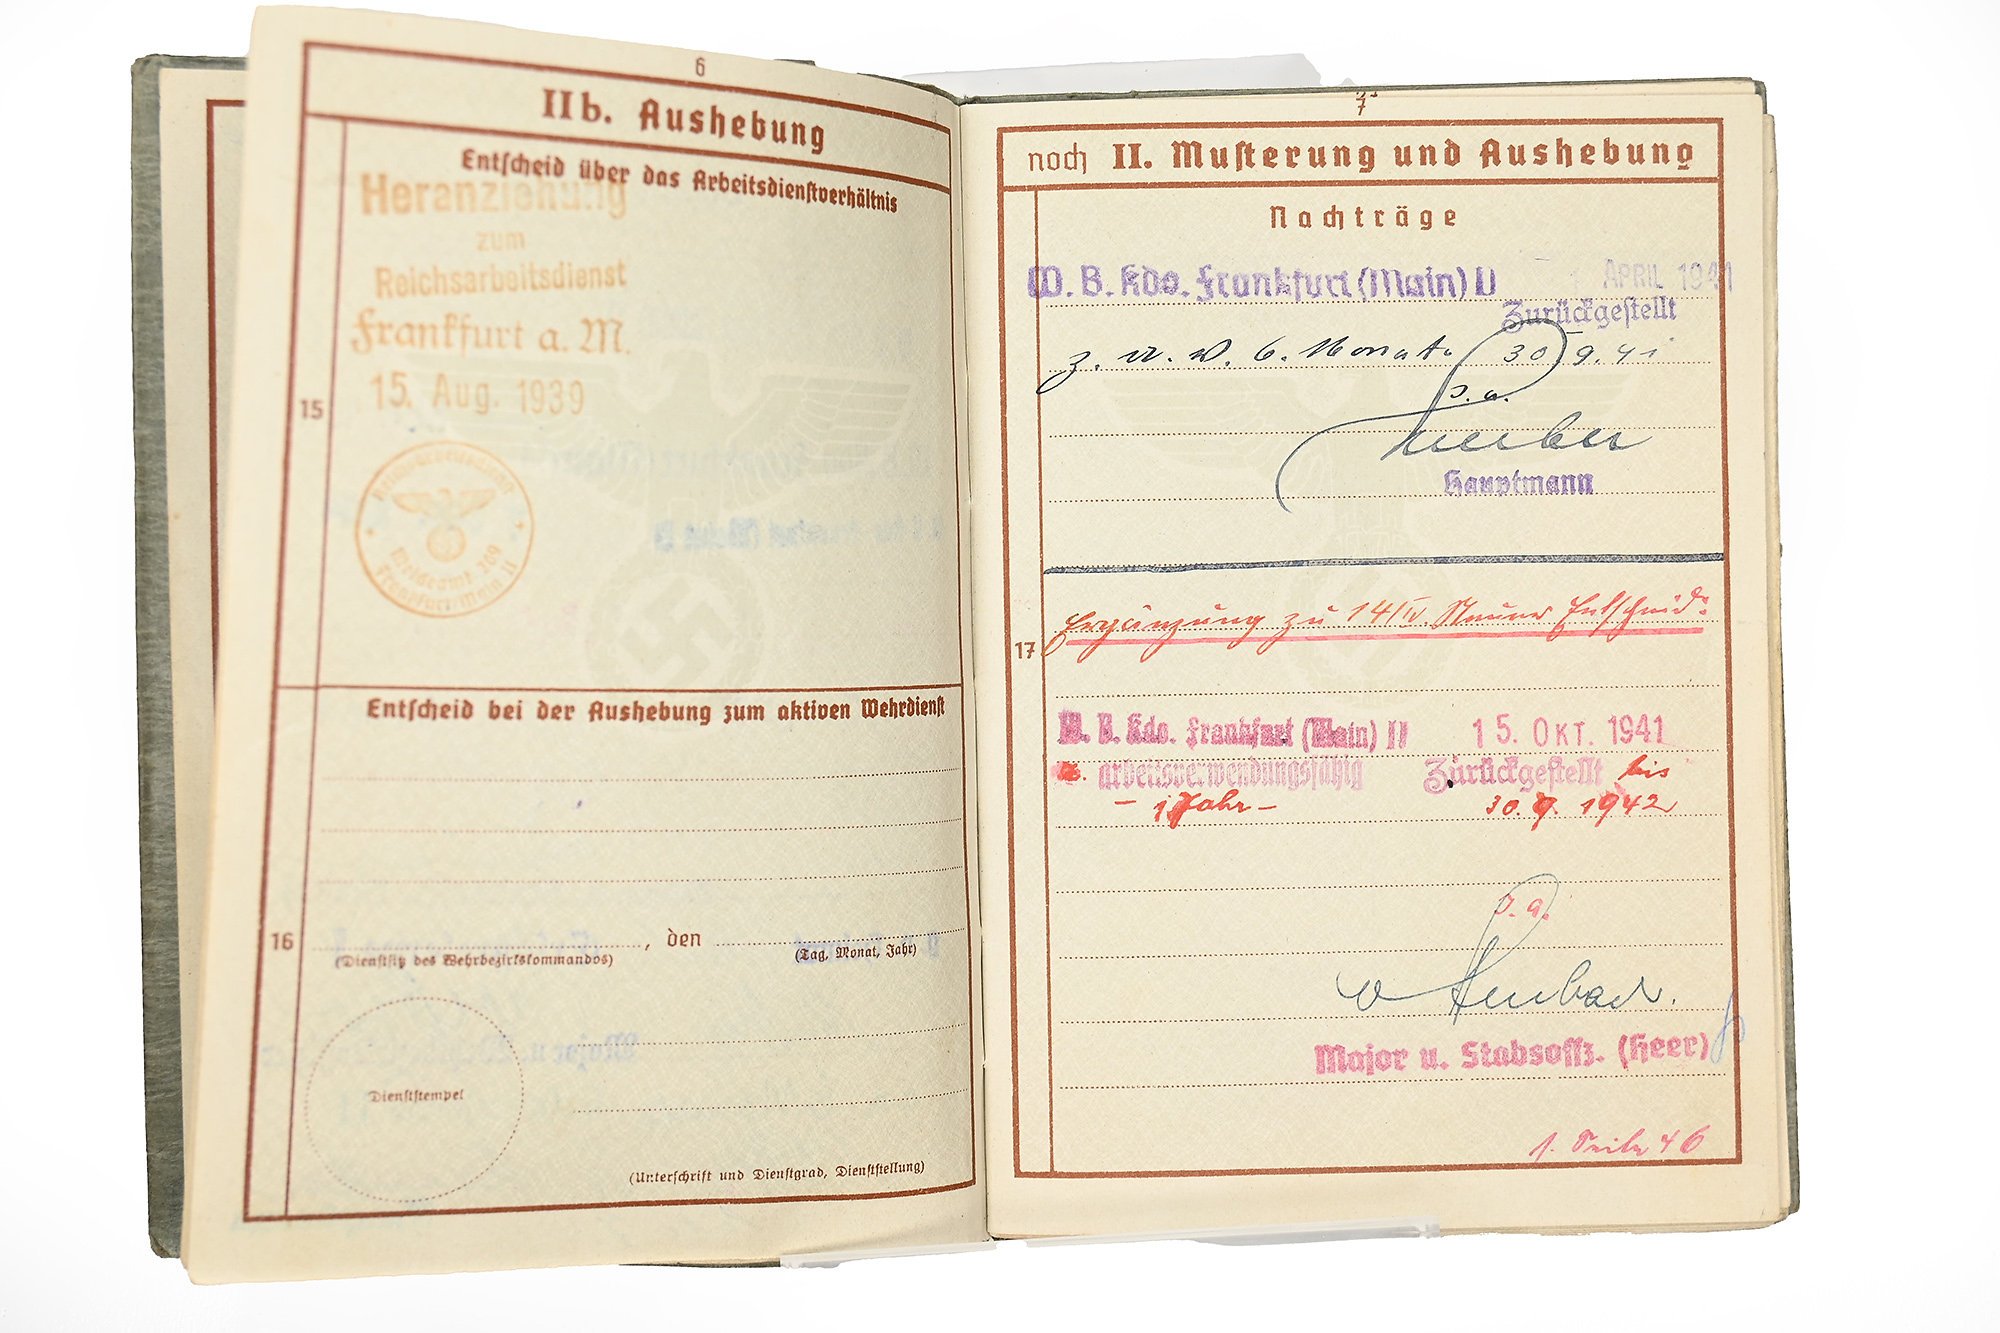 6
IIb. Aushebung
Entscheid über das Arbeitsdienstverhältnis
Heranziehung
zum
Reichsarbeitsdienst
Frankfurt a. M.
15. Aug. 1939
15
Reichsarbeitsdienst
Meldeamt 269
Frankfurt/Main II
Entscheid bei der Aushebung zum aktiven Wehrdienst
16
, den
(Dienstsitz des Wehrbezirkskommandos) (Tag, Monat, Jahr)
Dienststempel
(Unterschrift und Dienstgrad, Dienststellung)
7
noch II. Musterung und Aushebung
Nachträge
W. B. Kdo. Frankfurt (Main) II 1 APRIL 1941
Zurückgestellt
z. u. w. 6. Monate 30 9. 41
J. A.
Hauptmann
17
Ergänzung zu 14/IV. Neuer Entscheid:
W. B. Kdo. Frankfurt (Main) II 15. OKT. 1941
arbeitsverwendungsfähig Zurückgestellt bis
- 1 Jahr - 30. 9. 1942
J. A.
Major u. Stabsoffz. (Heer)